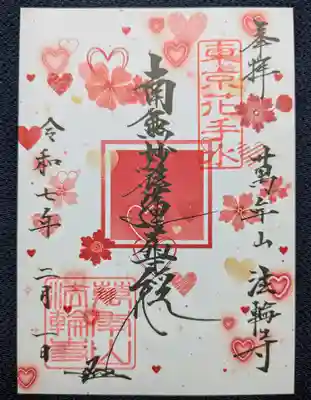 奉拝
萬年山 法輪寺
東京花手水
南無妙法蓮華経
令和七年 二月一日
萬年山
法輪寺